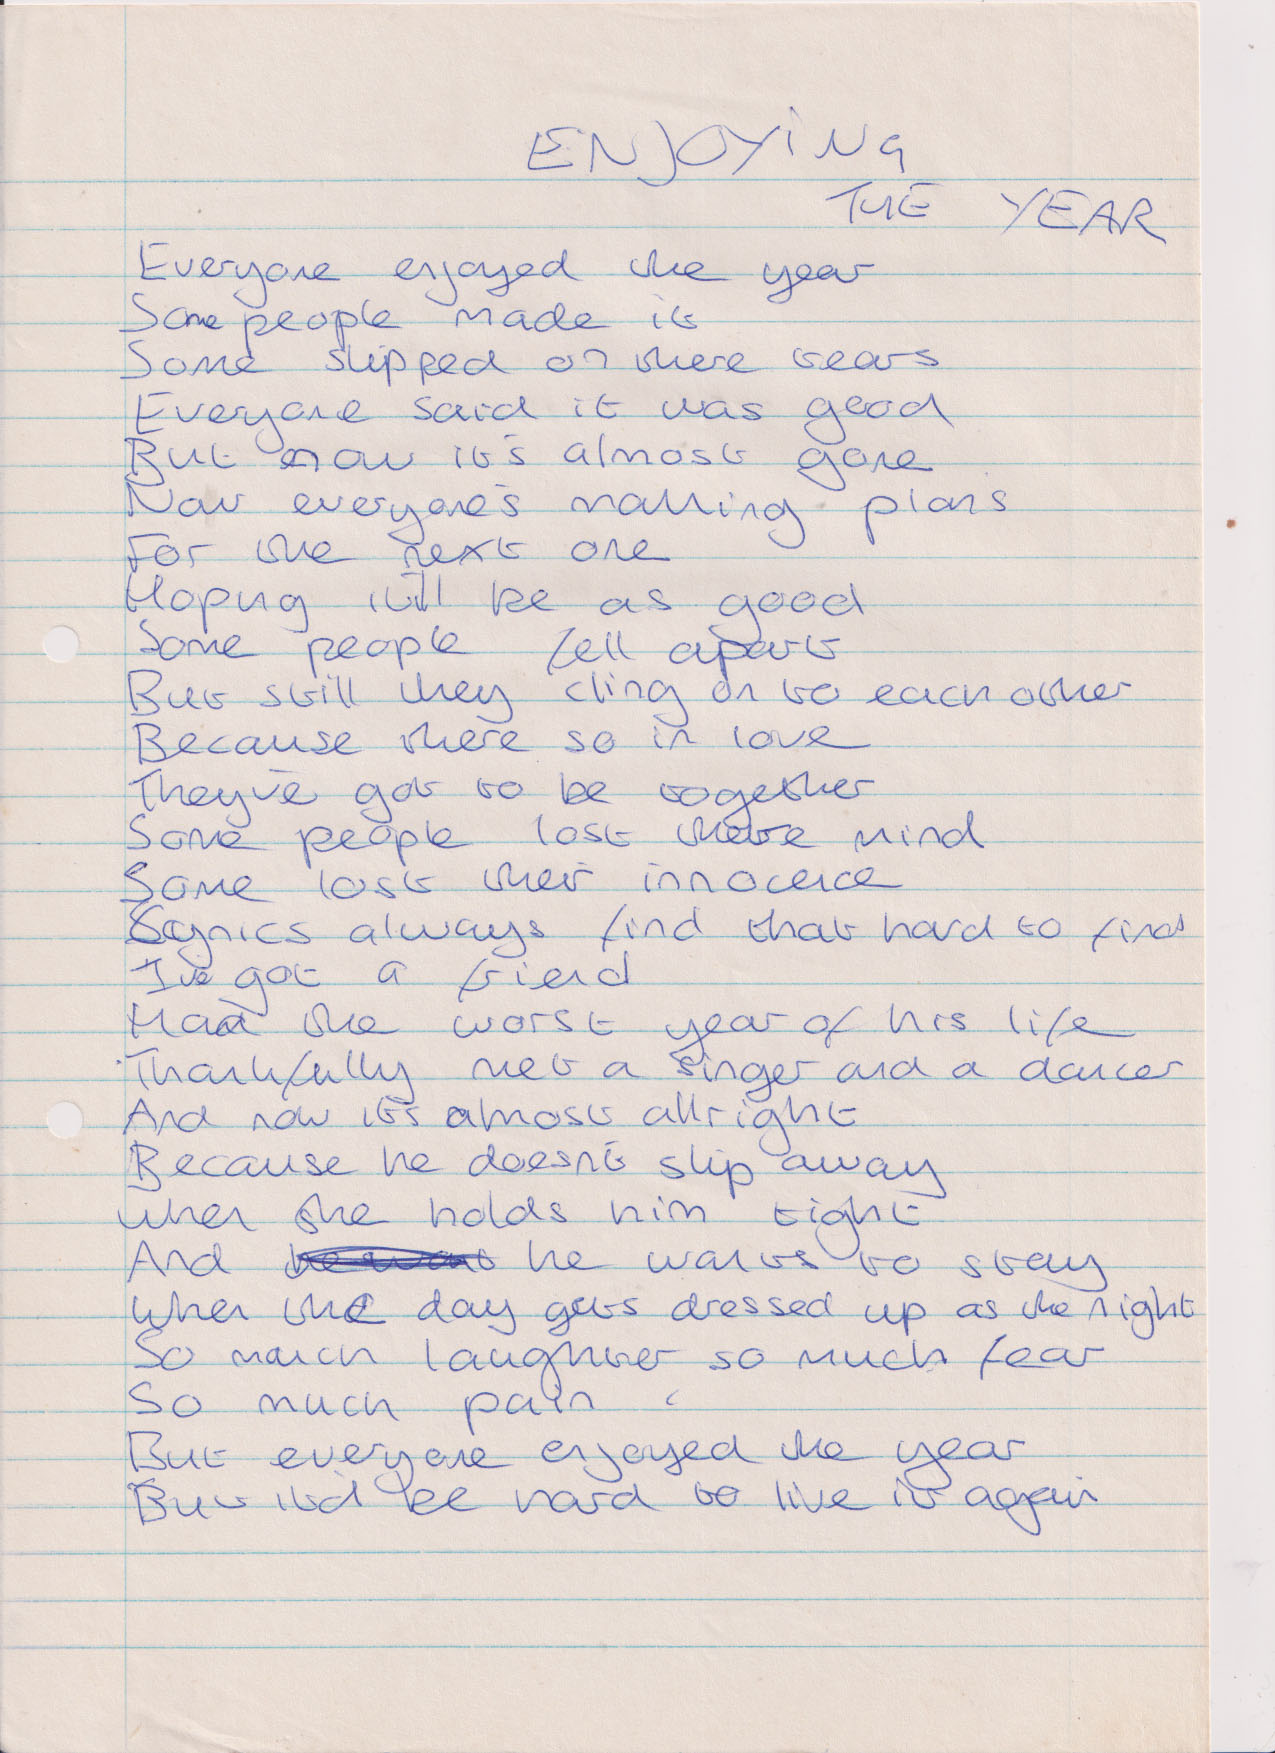 ENJOYiNG
THE YEAR
Everyone enjoyed the year
Some people made it
Some slipped on there tears
Everyone said it was good
But now it's almost gone
Now everyone's making plans
For the next one
Hoping it'll be as good
Some people fell apart
But still they cling on to each other
Because there so in love
They've got to be together
Some people lost there mind
Some lost their innocence
Cynics always find that hard to find
I've got a friend
Had the worst year of his life
Thankfully met a singer and a dancer
And now it's almost allright
Because he doesn't slip away
when she holds him tight
And he wants to stay
when the day gets dressed up as the night
So much laughter so much fear
So much pain
But everyone enjoyed the year
But it'd be hard to live it again